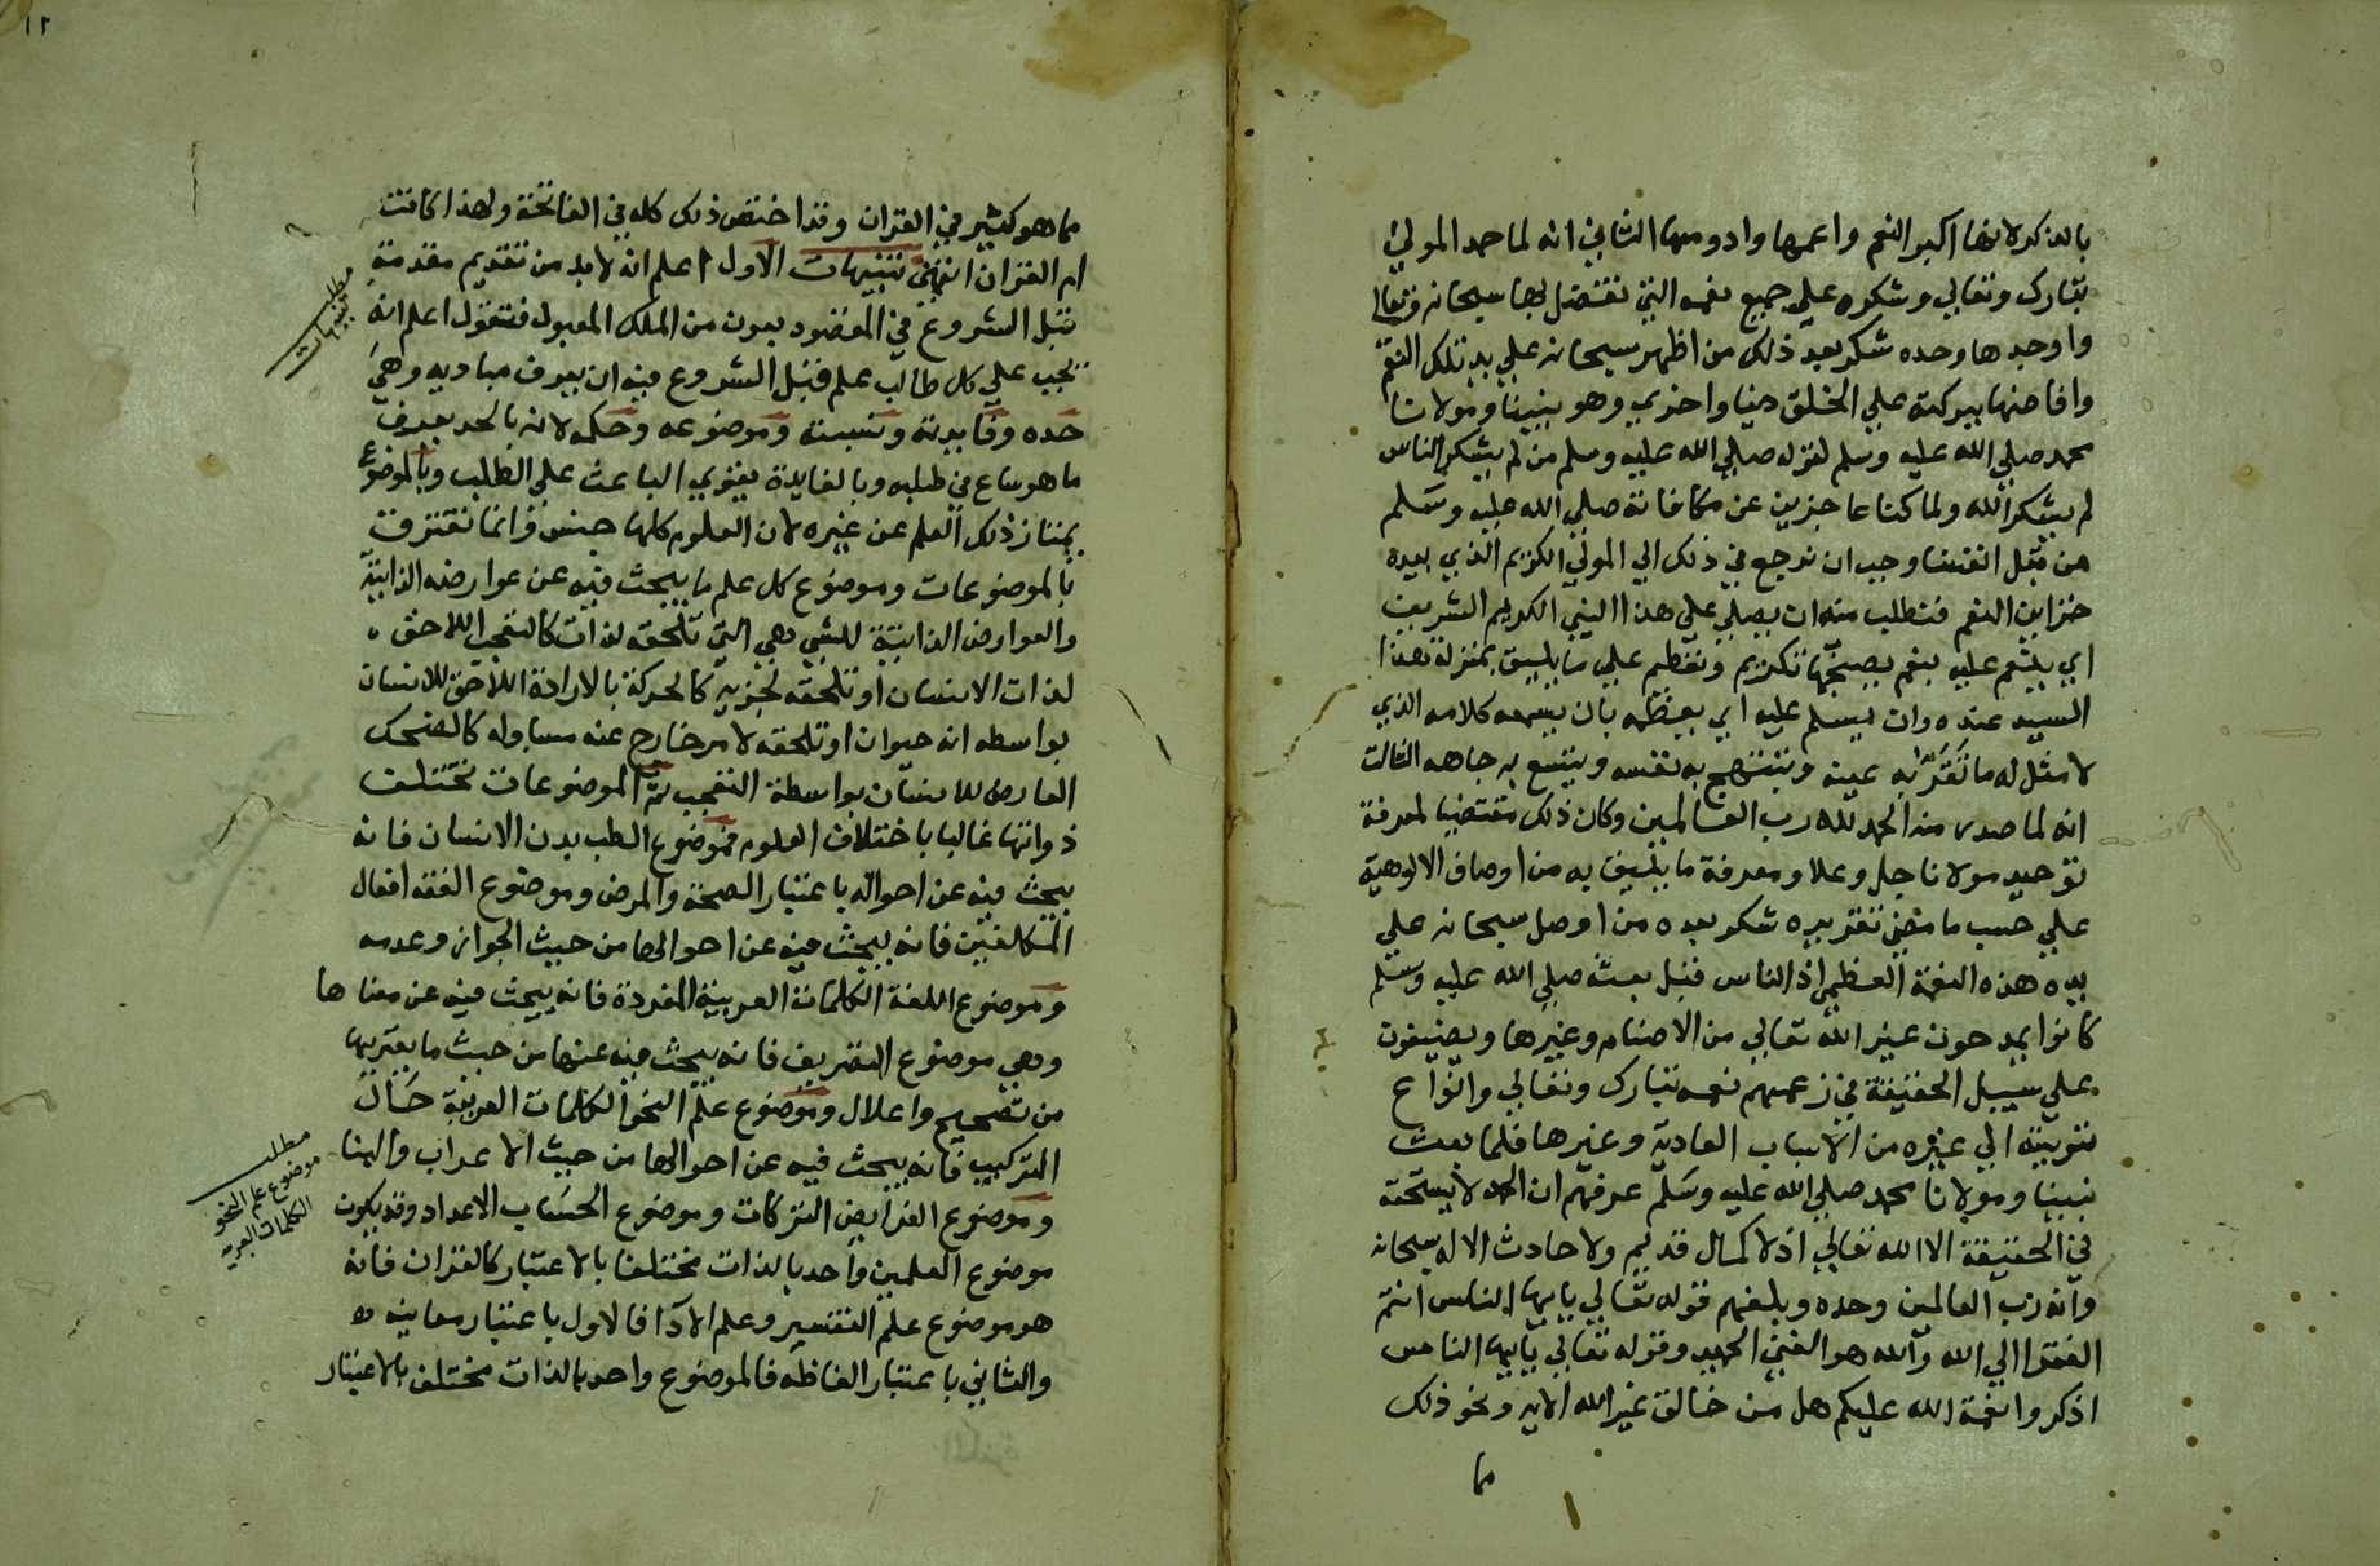 بالذكر لانها اكبر النعم واعمها وادومها الثاني انه لما حمد المولي
تبارك وتعالي وشكره علي جميع نعمه التي تفضل بها سبحانه وتعالي
واوجدها وحده شكر بعد ذلك من اظهر سبحانه علي يده تلك النعم
وافاضها ببركته علي الخلق دنيا واخري وهو نبينا ومولانا
محمد صلي الله عليه وسلم لقوله صلي الله عليه وسلم من لم يشكر الناس
لم يشكر الله ولما كنا عاجزين عن مكافاته صلي الله عليه وسلم
من قبل انفسنا وجب ان نرجع في ذلك الي المولي الكريم الذي بيده
خزاين النعم فنطلب منه ان يصلي علي هذا النبي الكريم الشريف
اي ينعم عليه بنعم يصحبها تكريم وتعظيم علي ما يليق بمنزلة هذا
السيد عنده وان يسلم عليه اي يعظمه بان يسمعه كلامه الذي
لا مثل له ما تقر به عينه وتبتهج به نفسه ويتسع به جاهه الثالث
انه لما صدر منه الحمد لله رب العالمين وكان ذلك مقتضيا لمعرفة
توحيد مولانا جل وعلا ومعرفة ما يليق به من اوصاف الالوهية
علي حسب ما مضي تقريره شكر بعده من اوصل سبحانه علي
يده هذه النعمة العظمي اذ الناس قبل بعثه صلي الله عليه وسلم
كانوا يمدحون غير الله تعالي من الاصنام وغيرها ويضيفون
علي سبيل الحقيقة في زعمهم نعمه تبارك وتعالي وانواع
تربيته الي غيره من الاسباب العادية وغيرها فلما بعث
نبينا ومولانا محمد صلي الله عليه وسلم عرفهم ان الحمد لا يستحقه
في الحقيقة الا الله تعالي اذ لا كمال قديم ولا حادث الا له سبحانه
وانه رب العالمين وحده وبلغهم قوله تعالي يايها الناس انتم
الفقرا الي الله والله هو الغني الحميد وقوله تعالي يايها الناس
اذكروا نعمة الله عليكم هل من خالق غير الله الاية ونحو ذلك
مما
١٢
مما هو كثير في القران وقد اختص ذلك كله في الفاتحة ولهذا كانت
ام القران انتهي تنبيهات الاول اعلم انه لا بد من تقديم مقدمة
قبل الشروع في المقصود بعون من الملك المعبود فنقول اعلم انه
يجب علي كل طالب علم قبل الشروع فيه ان يعرف مباديه وهي
حده وفايدته ونسبته وموضوعه وحكمه لانه بالحد يعرف
ما هو ساع في طلبه وبالفايدة يقوي الباعث علي الطلب وبالموضوع
يمتاز ذلك العلم عن غيره لان العلوم كلها جنس وانما تفترق
بالموضوعات وموضوع كل علم ما يبحث فيه عن عوارضه الذاتية
والعوارض الذاتية للشي هي التي تلحقه لذاته كالتعجب اللاحق
لذات الانسان او تلحقه لجزيه كالحركة بالارادة اللاحق للانسان
بواسطه انه حيوان او تلحقه لامر خارج عنه مساو له كالضحك
العارض للانسان بواسطة التعجب ثم الموضوعات تختلف
ذواتها غالبا باختلاف العلوم فموضوع الطب بدن الانسان فانه
يبحث فيه عن احواله باعتبار الصحة والمرض وموضوع الفقه افعال
المكلفين فانه يبحث فيه عن احوالها من حيث الجواز وعدمه
وموضوع اللغة الكلمات العربية المفردة فانه يبحث فيه عن معناها
وهي موضوع التصريف فانه يبحث فيه عنها من حيث ما يعتريها
من تصحيح واعلال وموضوع علم النحو الكلمات العربية حال
التركيب فانه يبحث فيه عن احوالها من حيث الاعراب والبنا
وموضوع الفرايض التركات وموضوع الحساب الاعداد وقد يكون
موضوع العلمين واحد بالذات مختلفا بالاعتبار كالقران فانه
هو موضوع علم التفسير وعلم الاداء فالاول باعتبار معانيه
والثاني باعتبار الفاظه فالموضوع واحد بالذات مختلف بالاعتبار
مطلب
تنبيهات
مطلب
موضوع علم النحو
الكلمات العربيه